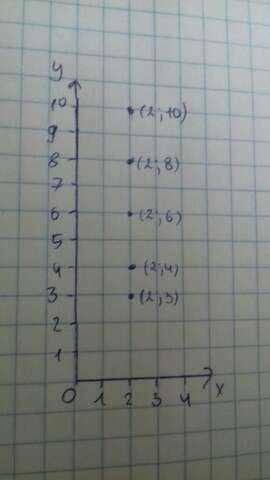 y
10 (2;10)
9
8 (2;8)
7
6 (2;6)
5
4 (2;4)
3 (2;3)
2
1
0 1 2 3 4 x